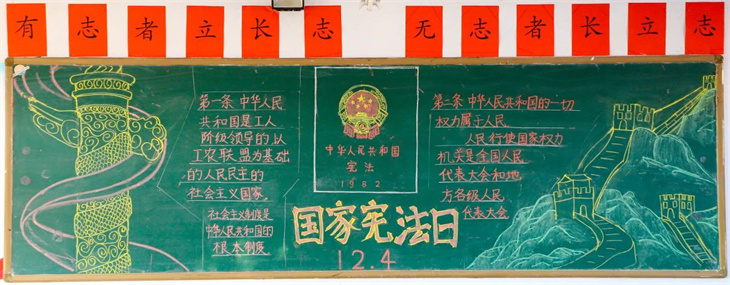 有志者立长志 无志者长立志
第一条 中华人民
共和国是工人
阶级领导的、以
工农联盟为基础
的人民民主的
社会主义国家。
社会主义制度是
中华人民共和国的
根本制度
中华人民共和国
宪法
1982
第一条 中华人民共和国的一切
权力属于人民。
人民行使国家权力
机关是全国人民
代表大会和地
方各级人民
代表大会
国家宪法日
12.4